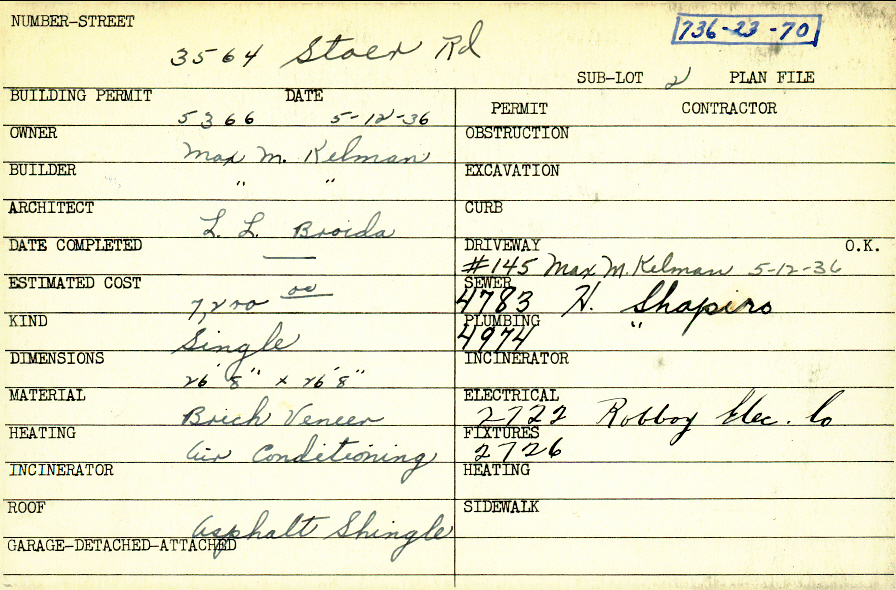 NUMBER-STREET
736-23-70
3564 Stoer Rd
SUB-LOT 2 PLAN FILE
BUILDING PERMIT DATE
5366 5-12-36
PERMIT CONTRACTOR
OWNER
Max M. Kelman
BUILDER
" "
ARCHITECT
L. L. Broida
DATE COMPLETED
—
ESTIMATED COST
7,200 00
KIND
Single
DIMENSIONS
26' 8" x 26' 8"
MATERIAL
Brick Veneer
HEATING
Air Conditioning
INCINERATOR
ROOF
Asphalt Shingle
GARAGE-DETACHED-ATTACHED
OBSTRUCTION
EXCAVATION
CURB
DRIVEWAY O.K.
#145 Max M. Kelman 5-12-36
SEWER
4783 H. Shapiro
PLUMBING
4974 "
INCINERATOR
ELECTRICAL
2722 Robboy Elec. Co
FIXTURES
2726
HEATING
SIDEWALK